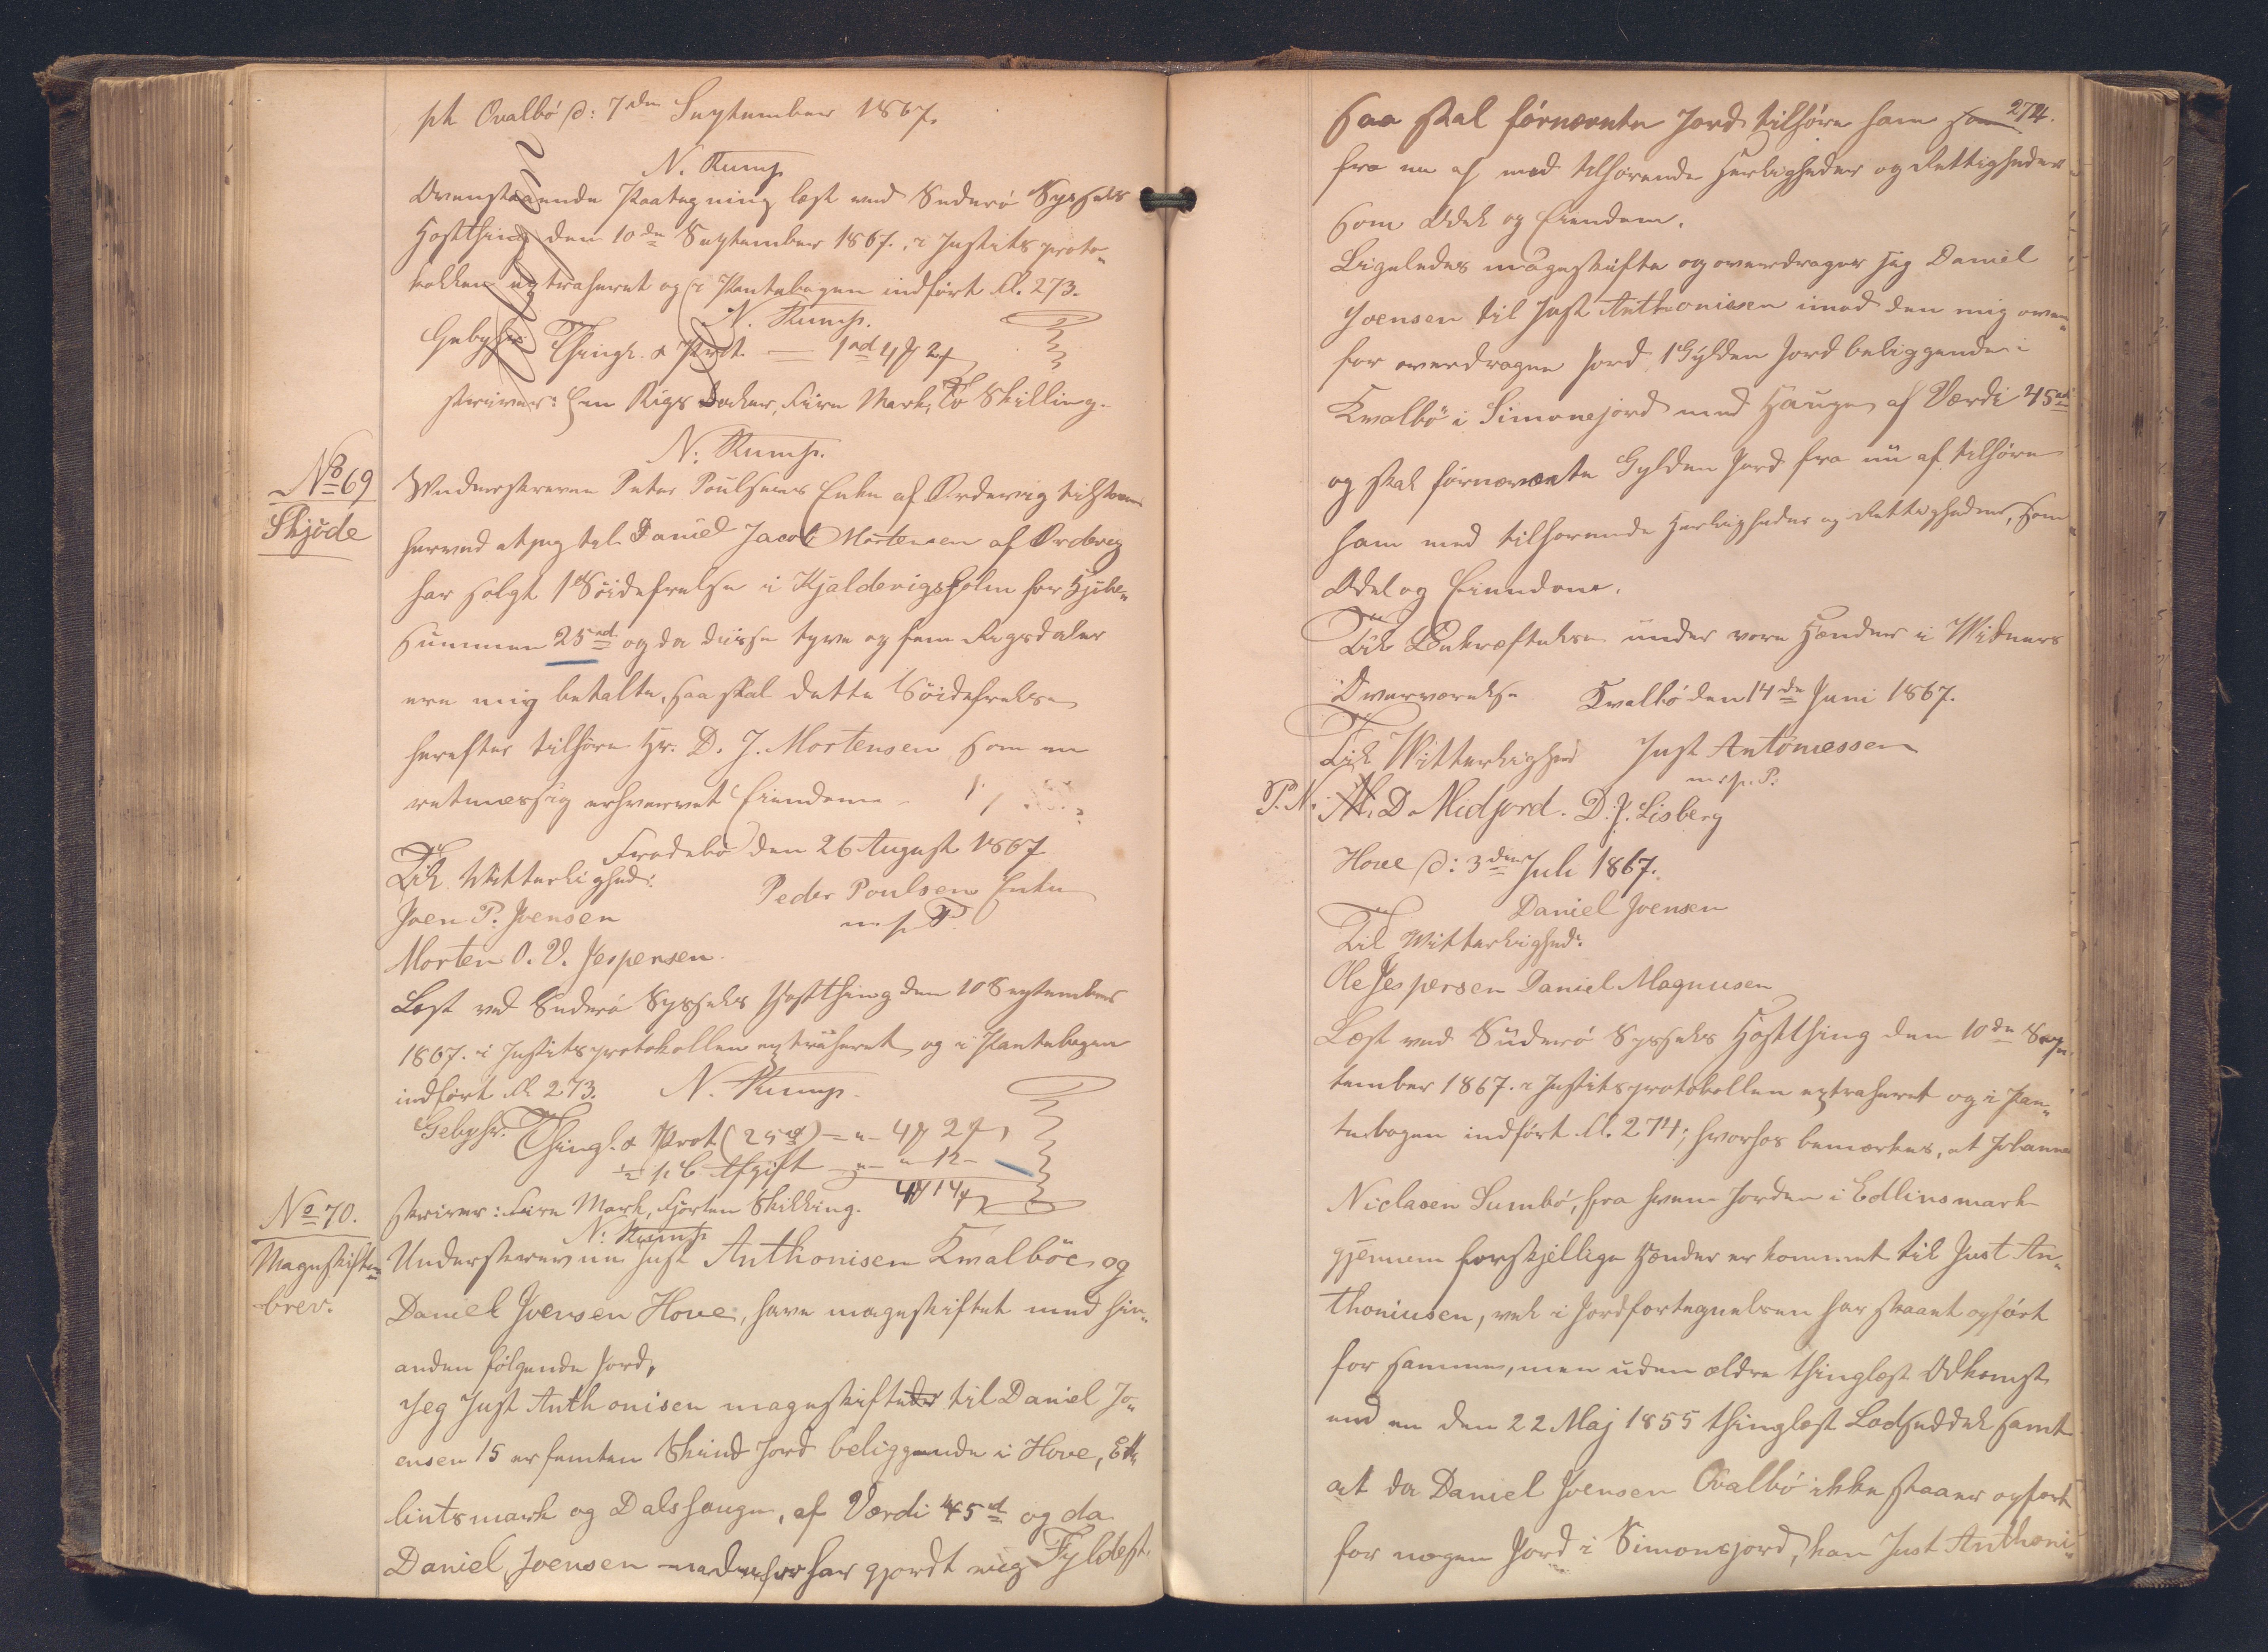 pt Qvalbö d: 7de September 1867.
N. Rump
Ovenstaaende Paategning læst ved Suderö Syssels
Høstthing den 10de September 1867., i Justitsproto-
kollen extraheret og i Pantebogen indført fol. 273.
N. Rump.
Gebyhr: Thingl. & Prot. — 1rd 4 Mk 2 s
skriver: Een Rigsdaler, Fire Mark, To Skilling.
N. Rump.
No 69
Skjöde
Underskrevne Peter Poulsens Enke af Ördevig tilstaaer
herved at jeg til Daniel Jacob Mortensen af Ördevig
har solgt 1 Söidefrelse i Kjaldevigsholm for Kjöbe-
summen 25rd og da disse tyve og fem Rigsdaler
ere mig betalte, saa skal dette Söidefrelse
herefter tilhöre Hr. D. J. Mortensen som en
retmæssig erhvervet Eiendom
Frodebö den 26 August 1867
Til Vitterlighed:
Peder Poulsens Enke
m. p. P.
Joen P. Joensen
Morten O. V. Jespersen.
Læst ved Suderö Syssels Høstthing den 10 September
1867. i Justitsprotokollen extraheret og i Pantebogen
indført fol 273. N. Rump.
Gebyhr. Thingl. & Prot (25rd) — " — 4 Mk 2 s
½ p C Afgift — " — " 12 -
4 Mk 14 s
skriver: Fire Mark, Fjorten Skilling.
N. Rump
No 70.
Mageskifte-
brev.
Underskrevne Just Anthonisen Kvalböe og
Daniel Joensen Hove, have mageskiftet med hin-
anden følgende Jord,
Jeg Just Anthonisen mageskifteder til Daniel Jo-
ensen 15 er femten Skind Jord beliggende i Hove, Ed-
lintsmark og Dalshauge, af Værdi 45rd og da
Daniel Joensen har gjordt mig Fyldest.
274.
saa skal förnævnte Jord tilhöre ham som
fra nu af med tilhørende Herligheder og Rettigheder
som Odel og Eiendom.
Ligeledes mageskifte og overdrager jeg Daniel
Joensen til Just Anthonissen imod den mig oven-
for overdragne Jord, 1 Gylden Jord beliggende i
Kvalbö i Simonejord med Hauge af Værdi 45rd
og skal förnævnte Gylden Jord fra nu af tilhöre
ham med tilhørende Herligheder og Rettigheder, som
Odel og Eiendom.
Til Bekræftelse under vore Hænder i Vidners
Overværelse Kvalbö den 14de Juni 1867.
Til Vitterlighed Just Antoniessen
m. p. P.
P. N. M. D. Midjord. D. J. Lisberg
Hove d: 3die Juli 1867.
Daniel Joensen
Til Vitterlighed:
Ole Jespersen Daniel Magnusen
Læst ved Suderö Syssels Høstthing den 10de Sep-
tember 1867. i Justitsprotokollen extraheret og i Pan-
tebogen indført fol. 274; hvorhos bemærkes, at Johannes
Niclasen Sumbö, fra hvem Jorden i Edlinsmark
gjennem forskjellige Hænder er kommet til Just An-
thoniusen, vel i Jordfortegnelsen har staaet opført
for samme, men uden ældre thinglæst Adkomst
end en den 22 Maj 1855 thinglæst Lodseddel samt
at da Daniel Joensen Qvalbö ikke staaer opført
for nogen Jord i Simonsjord, kan Just Anthoni-